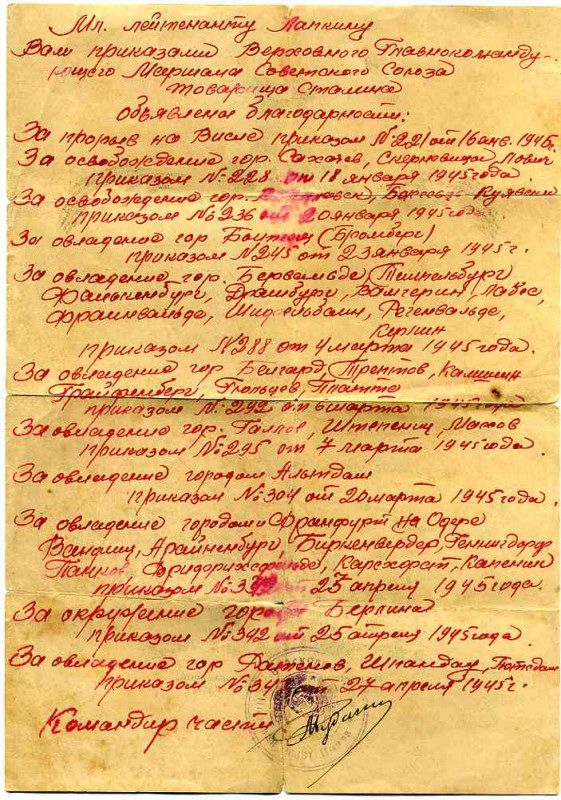 Мл. лейтенанту Лапкину
Вам приказами Верховного Главнокоманду-
ющего Маршала Советского Союза
товарища Сталина
объявлена благодарность:
За прорыв на Висле приказом №221 от 16 янв. 1945г.
За освобождение гор. Сохачев, Скерневицы, Лович
приказом №228 от 18 января 1945 года.
За освобождение гор. Куявски
приказом №236 от 20 января 1945 года.
За овладение гор (Бромберг)
приказом №245 от 23 января 1945г.
За овладение гор. Бервальде, Темпельбург
Фалькенбург, Драмбург, Вангерин, Лабес,
Фрайенвальде, Шифельбайн, Регенвальде,
Керлин
приказом №288 от 4 марта 1945 года.
За овладение гор Белгард, Трептов, Каммин
Грайфенберг, Гюльцов, Платте
приказом №292 от 6 марта 1945 года
За овладение гор. Голлнов, Штепениц, Массов
приказом №295 от 7 марта 1945 года.
За овладение городом Альтдам
приказом №304 от 20 марта 1945 года.
За овладение городами Франфурт на Одере
Вандлиц, Биркенвердер, Геннигдорф
Панков, Фридрихсфельде, Карлсхорст, Кепеник
приказом от 23 апреля 1945 года.
За окружение города Берлина
приказом №342 от 25 апреля 1945 года
За овладение гор Ратенов, Шпандау, Потсдам
приказом от 27 апреля 1945г.
Командир части